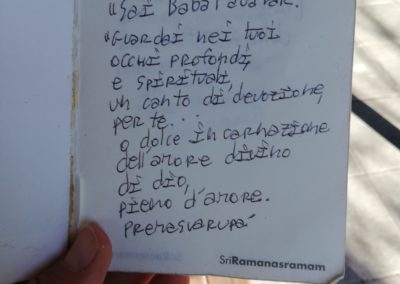 "Sai Baba Pavarak.
"Guardai nei tuoi
occhi profondi,
e spirituali,
un canto di devozione,
per te...
o dolce incarnazione
dell'amore divino
di dio,
pieno d'amore.
Premasvarupa
SriRamanasramam